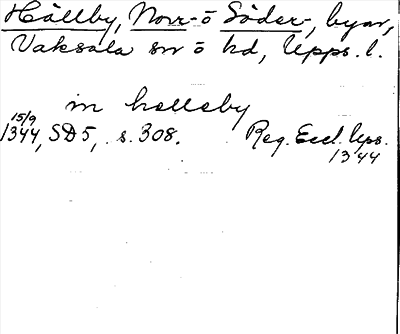 Hällby, Norr- o Söder-, byar,
Vaksala sn o hd, Upps. l.
in hælleby
15/9
1344, SD5, s. 308. Reg. Eccl. Ups.
1344